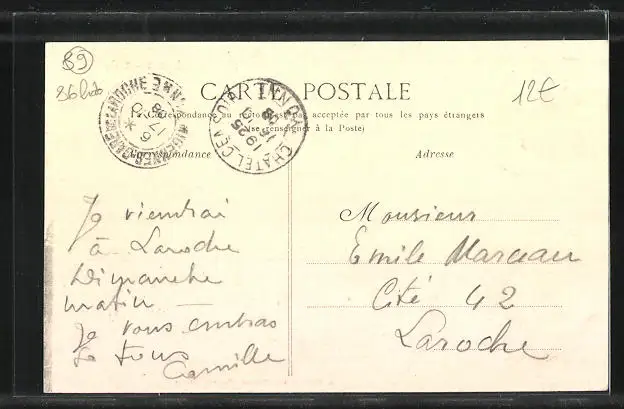 89
CARTE POSTALE
12€
La Correspondance au recto n'est pas acceptée par tous les pays étrangers
(Se renseigner à la Poste)
Correspondance
Adresse
CHATEL CENSOIR YONNE
Je viendrai
à Laroche
Dimanche
matin —
Je vous embras
se tous
Camille
Monsieur
Emile Marceau
Cité 42
Laroche